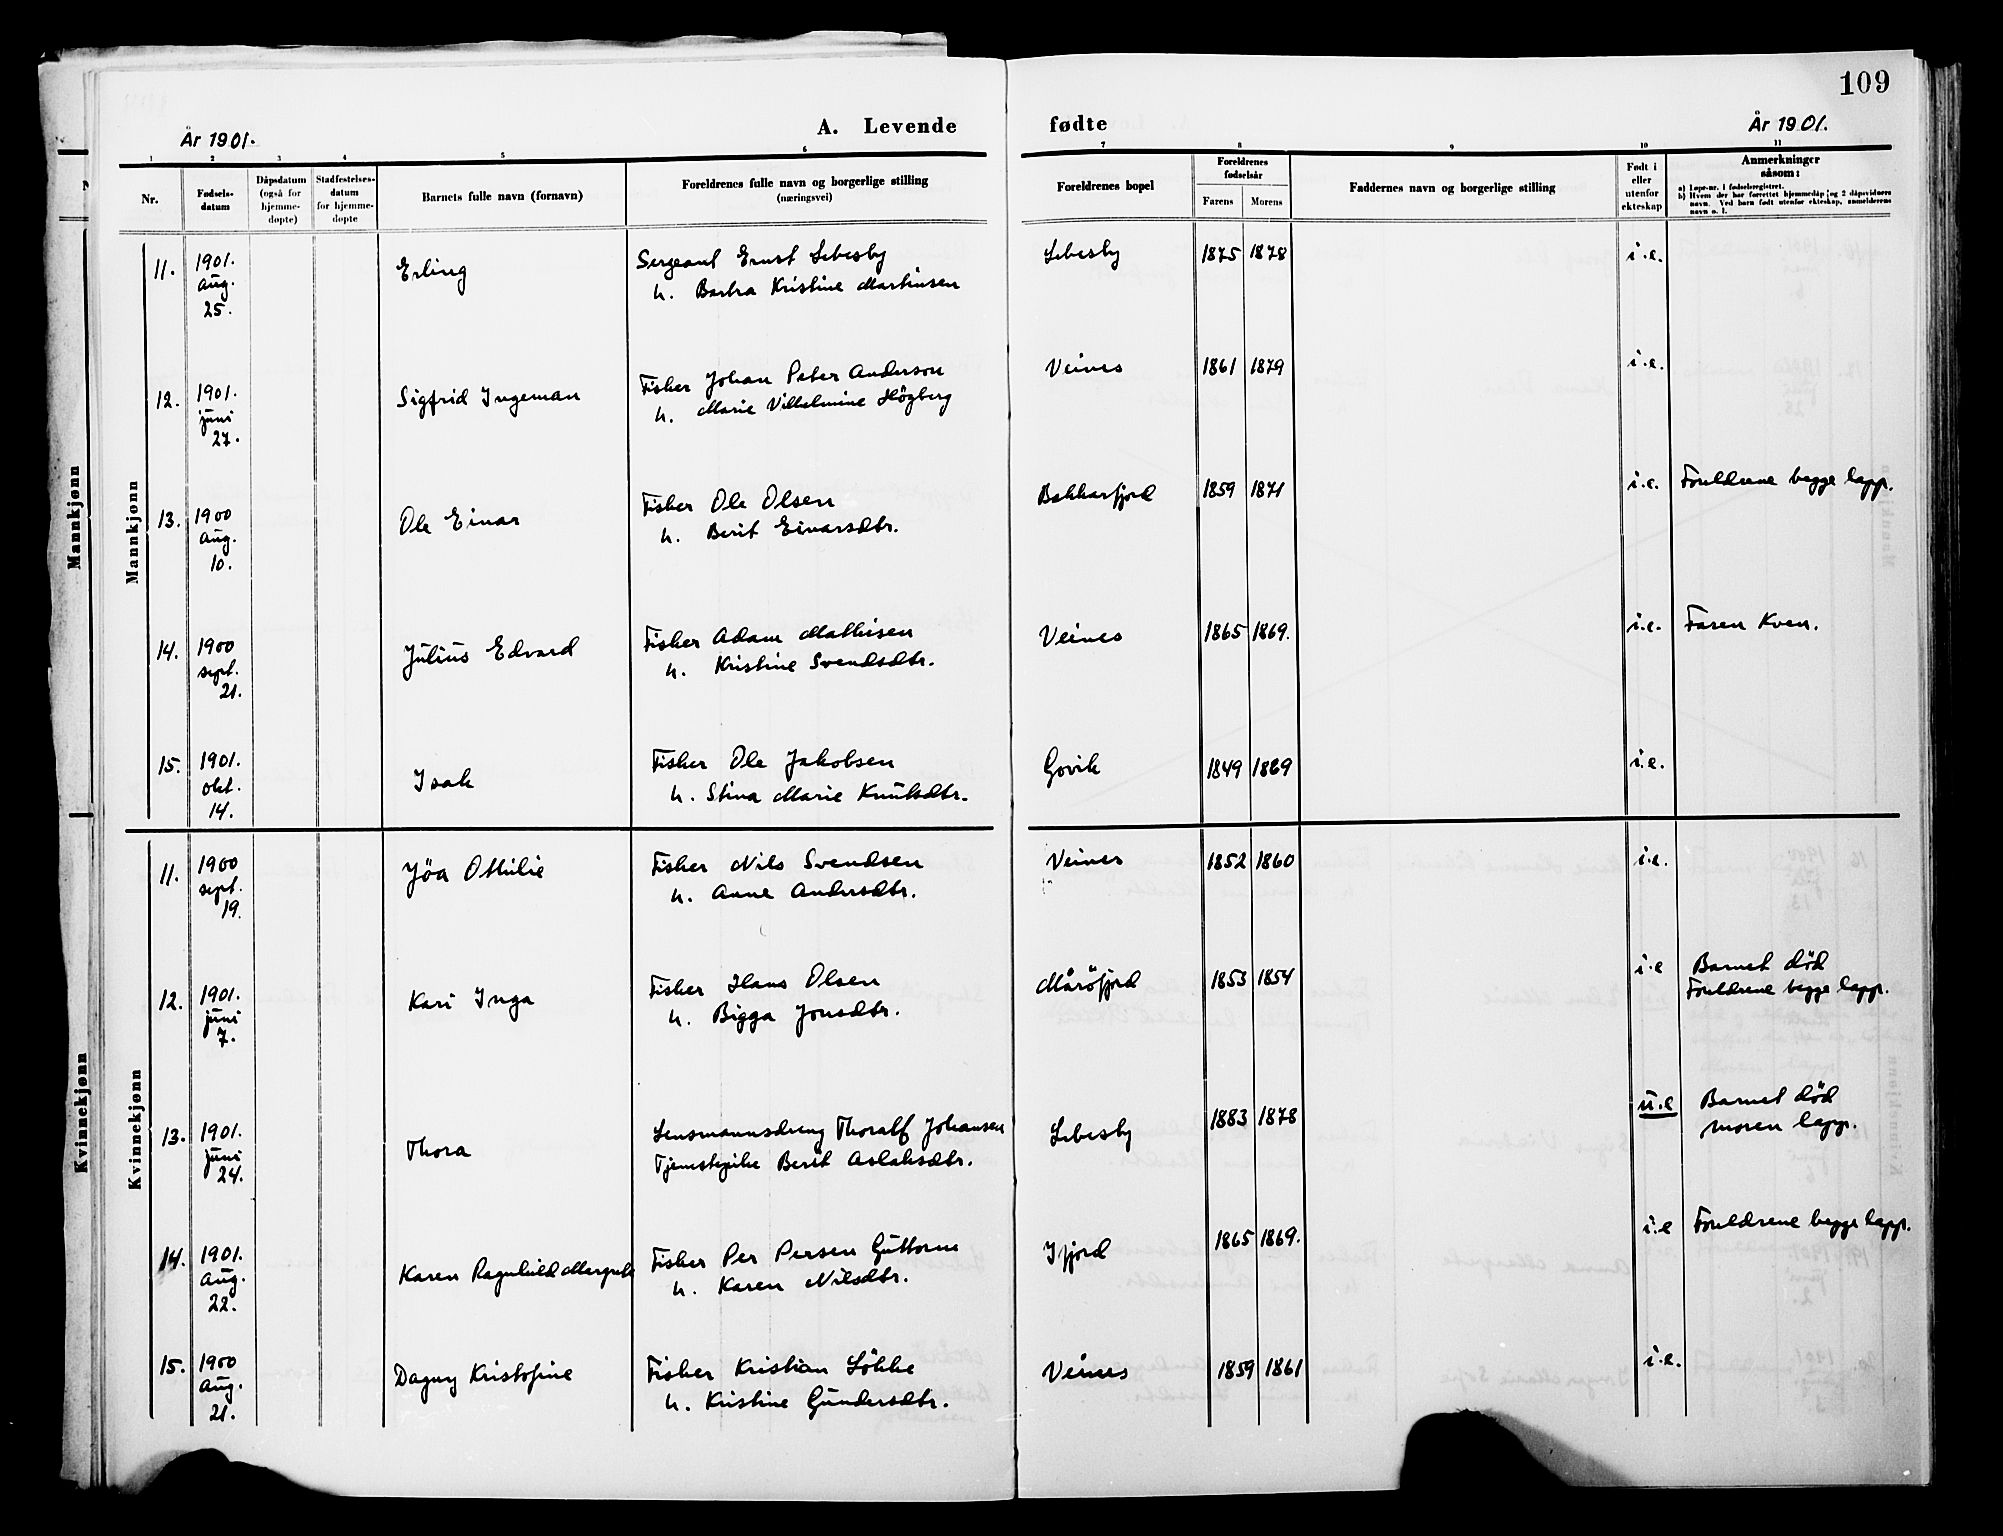 109
År 1901.
A. Levende fødte
År 1901.
1 2 3 4 5 6 7 8 9 10 11
Nr.
Fødsels-
datum
Dåpsdatum
(også for
hjemme-
døpte)
Stadfestelses-
datum
for hjemme-
døpte
Barnets fulle navn (fornavn)
Foreldrenes fulle navn og borgerlige stilling
(næringsvei)
Foreldrenes bopel
Foreldrenes
fødselsår
Farens
Morens
Faddernes navn og borgerlige stilling
Født i
eller
utenfor
ekteskap
Anmerkninger
såsom:
a) Løpe-nr. i fødselsregistret.
b) Hvem der har forrettet hjemmedåp og 2 dåpsvidners
navn. Ved barn født utenfor ekteskap, anmelderens
navn o. l.
Mannkjønn
Mannkjønn
11. 1901. Aug. 25. Erling
Sergeant Ernst Lebesby
h. Barbra Kristine Martinsen
Lebesby 1875 1878 i.e.
12. 1901. juni 27. Sigfrid Ingeman
Fisker Johan Peter Anderson
h. Marie Vilhelmine Högberg
Veines 1861 1879 i.e.
13. 1900 Aug. 10. Ole Einar
Fisker Ole Olsen
h. Berit Einarsdtr.
Bakkarfjord 1859 1871 i.e. Foreldrene begge lapp.
14. 1900 sept. 21. Julius Edvard
Fisker Adam Mathisen
h. Kristine Svendsdtr.
Veines 1865 1869. i.e. Faren Kven.
15. 1901. okt. 14. Isak
Fisker Ole Jakobsen
h. Stina Marie Knutsdtr.
Govik 1849 1869 i.e.
Kvinnekjønn
Kvinnekjønn
11. 1900 sept. 19. Jöa Othilie
Fisker Nils Svendsen
h. Anne Andersdtr.
Veines 1852 1860 i.e.
12. 1901. juni 7. Kari Inga
Fisker Hans Olsen
h. Bigga Jonsdtr.
Mårøfjord 1853 1854 i.e Barnet død
Foreldrene begge lapp.
13. 1901. juni 24. Thora
Lensmannsdreng Thoralf Johansen
Tjenestepike Berit Aslaksdtr.
Lebesby 1883 1878 u.e Barnet død
moren lapp.
14. 1901. Aug. 22. Karen Ragnhild Margrete
Fisker Per Persen Guttorm
h. Karen Nilsdtr.
Ifjord 1865 1869. i.e Foreldrene begge lapp.
15. 1900 Aug. 21. Dagny Kristofine
Fisker Kristian Løkke
h. Kristine Gundersdtr.
Veines 1859 1861 i.e.